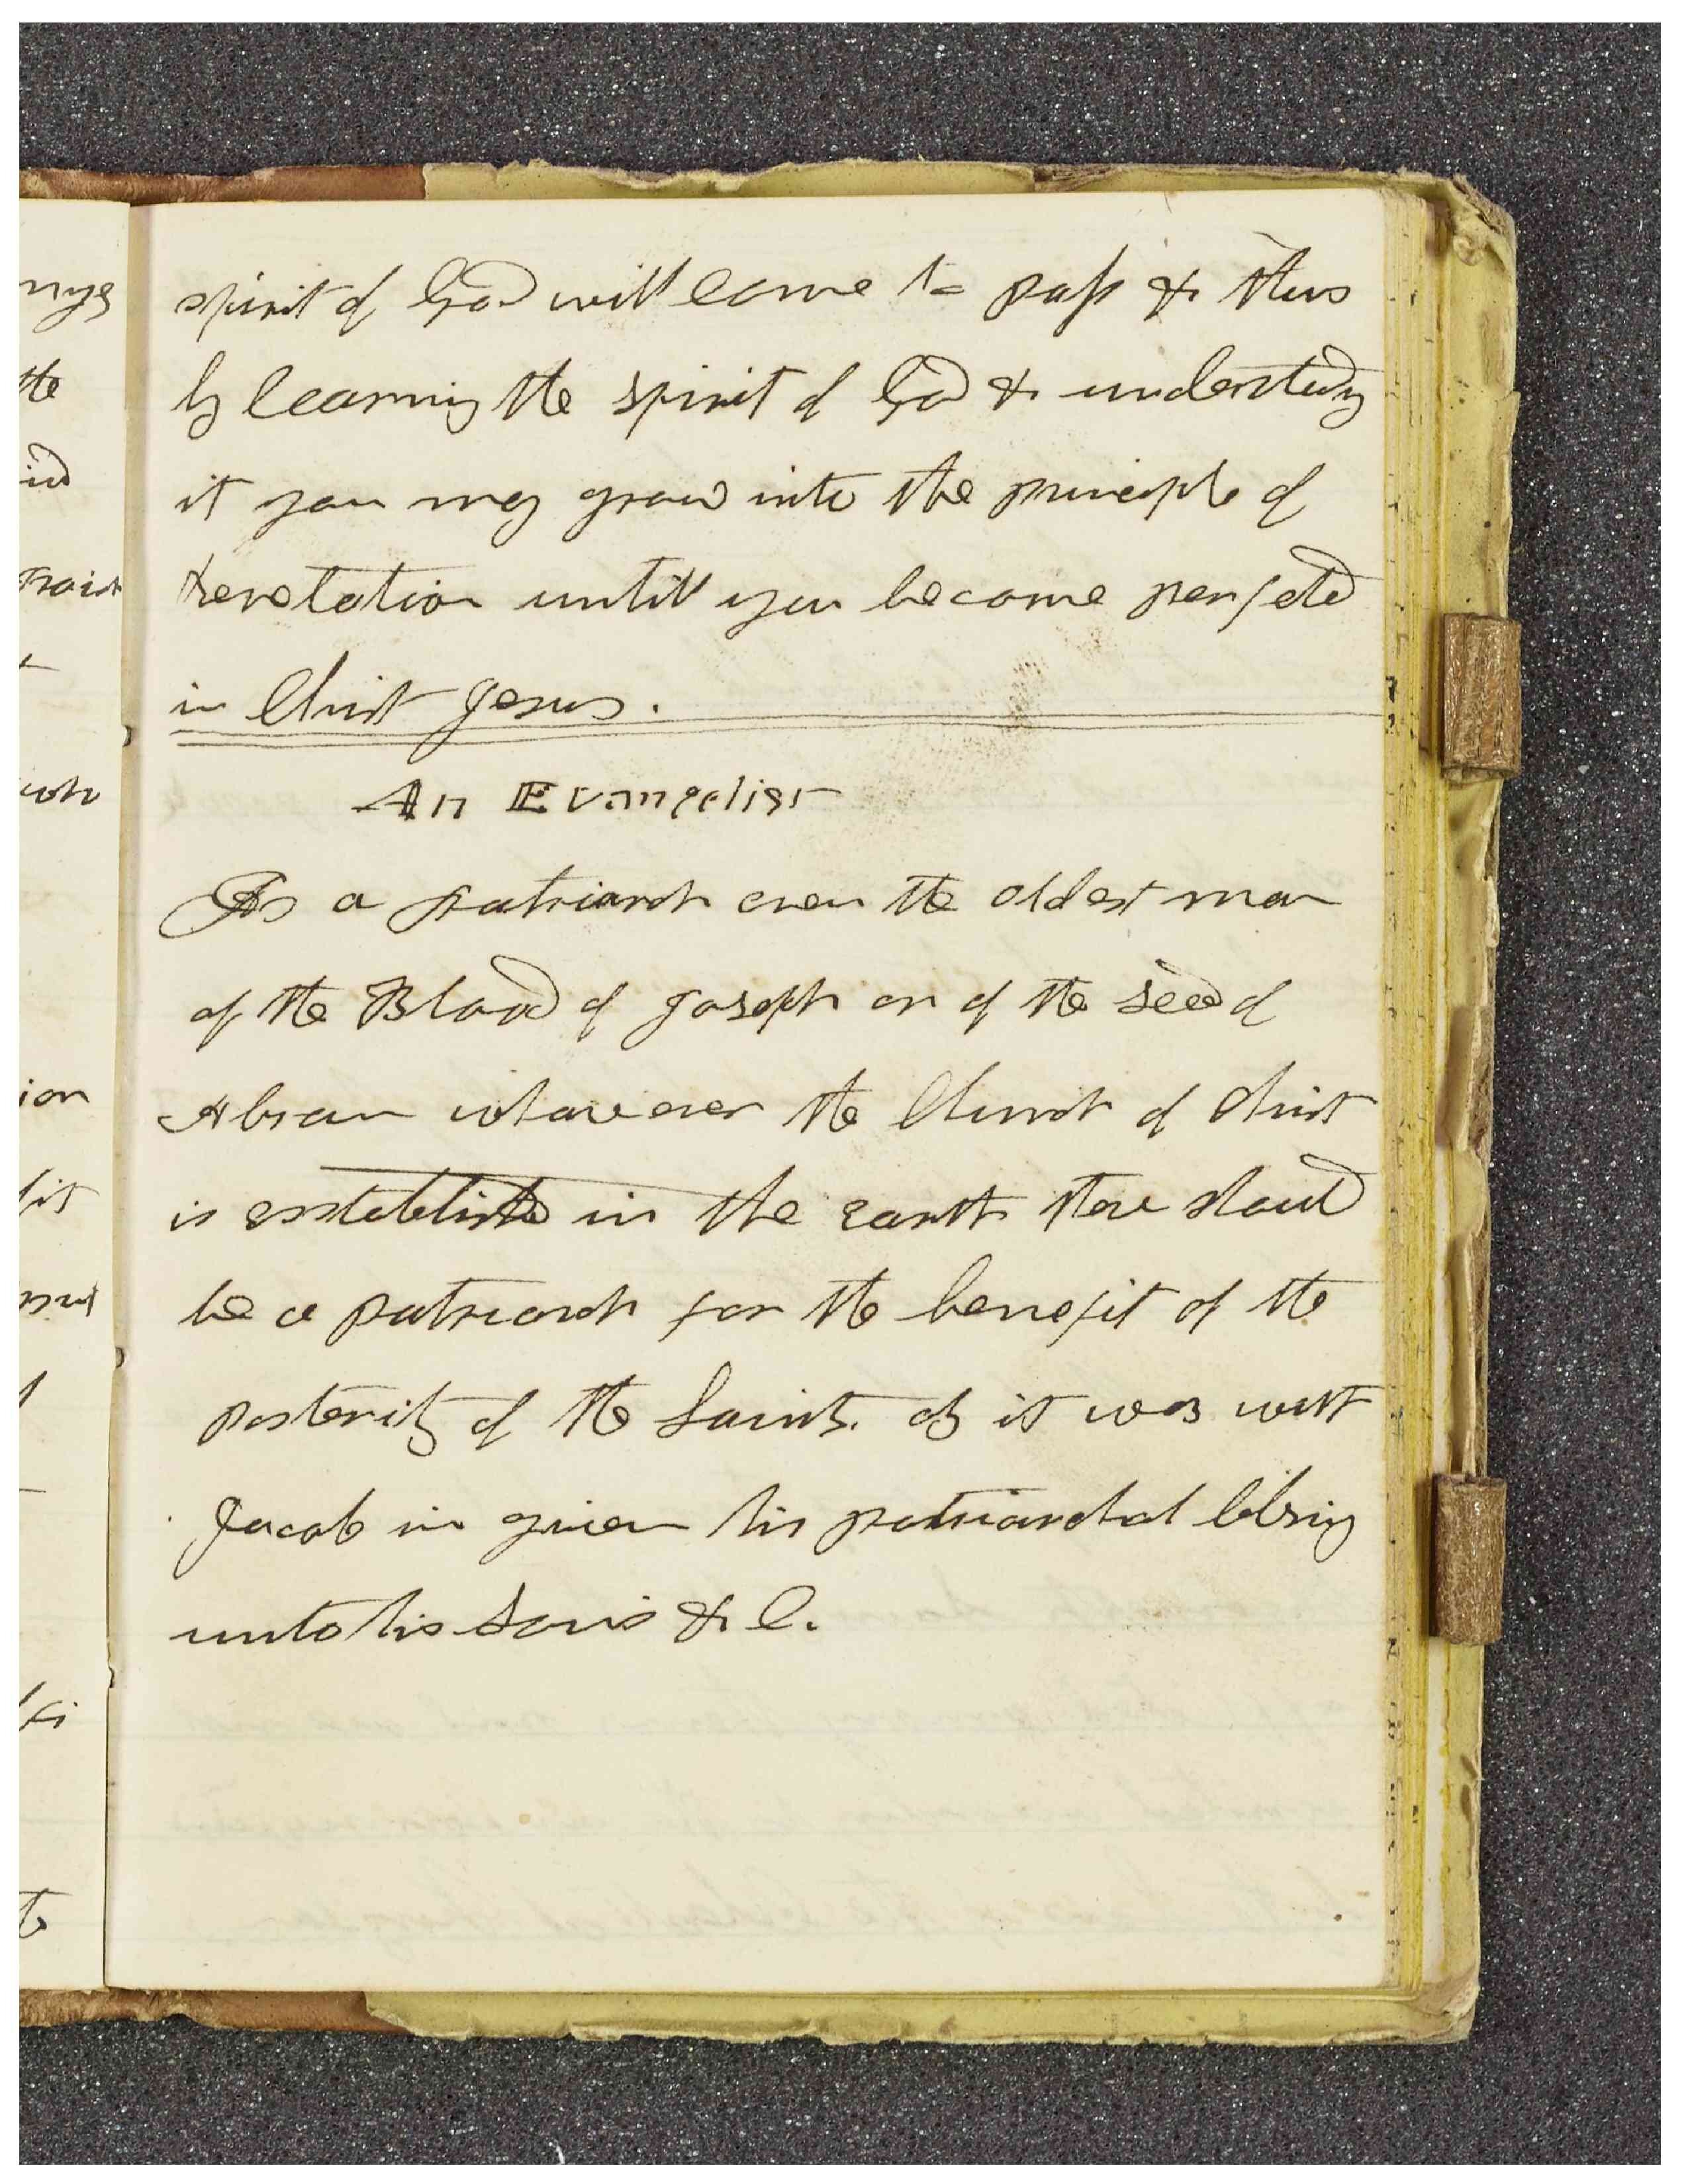 spirit of God will come to pass & thus
by learning the spirit of God & understandng
it you may grow into the principle of
Revelation untill you become perfetd
in Christ Jesus.
An Evangelist
Is a patriarch even the oldest man
of the Blood of Joseph or of the seed of
Abram whareever the Church of Christ
is esstablished in the earth thare should
be a patriarch for the benefit of the
posterity of the Saints. as it was with
Jacob in given his patriarchal blesing
unto his Sons & c.